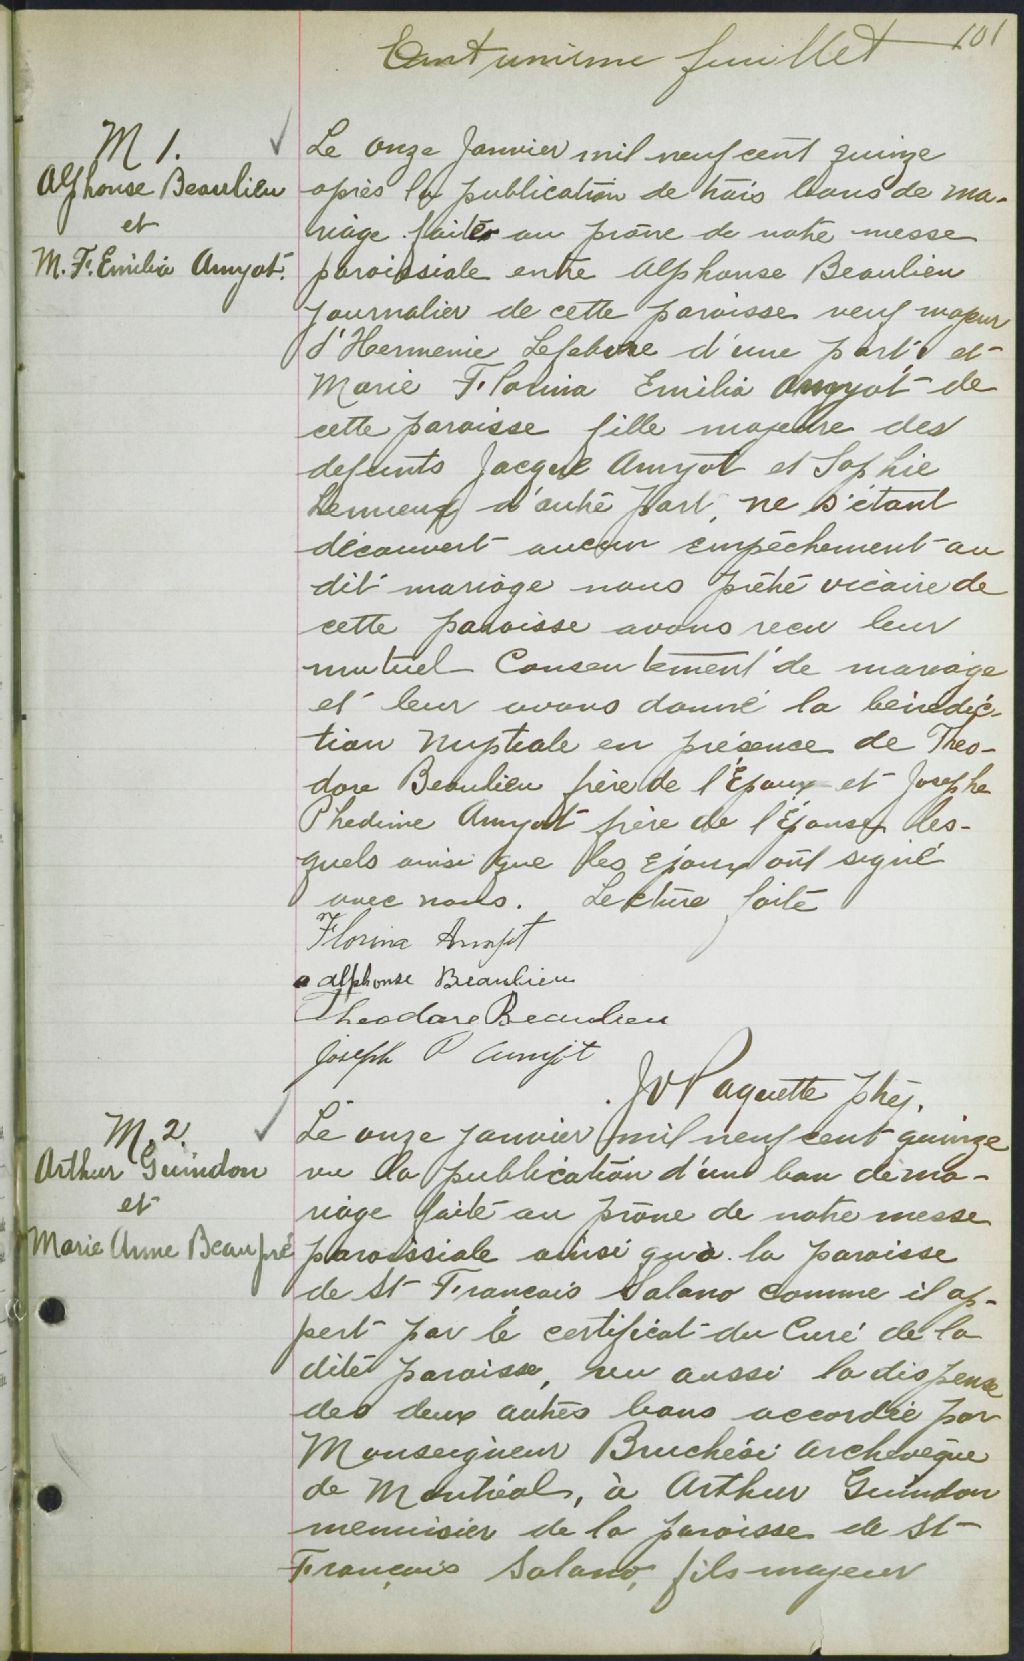 Cent unième feuillet 101
M 1.
Alphonse Beaulieu
et
M. F. Emilia Amyot.
Le onze Janvier mil neuf cent quinze
après la publication de trois bans de ma-
riage faites au prône de notre messe
paroissiale entre Alphonse Beaulieu
journalier de cette paroisse veuf majeur
d'Hermenie Lefebvre d'une part, et
Marie Florina Emilia Amyot de
cette paroisse fille majeure des
defunts Jacque Amyot et Sophie
Lemieux d'autre part, ne s'étant
découvert aucun empêchement au
dit mariage nous prêtre vicaire de
cette paroisse avons recu leur
mutuel Consentement de mariage
et leur avons donné la bénédic-
tion Nuptiale en présence de Théo-
dore Beaulieu frère de l'Epoux et Josephe
Phedime Amyot frère de l'Épouse les-
quels ainsi que les Epoux ont signé
avec nous. Lecture faite
Florina Amyot
Alphonse Beaulieu
Theodore Beaulieu
Joseph P Amyot
J V Paquette ptre.
M. 2.
Arthur Guindon
et
Marie Anne Beaupré
Le onze janvier mil neuf cent quinze
vu la publication d'un ban de ma-
riage faite au prône de notre messe
paroissiale ainsi qu'à la paroisse
de St François Solano comme il ap-
pert par le certificat du Curé de la
dite paroisse, vu aussi la dispense
des deux autres bans accordée par
Monseigneur Bruchési Archevêque
de Montréal, à Arthur Guindon
menuisier de la paroisse de St
François Solano, fils majeur